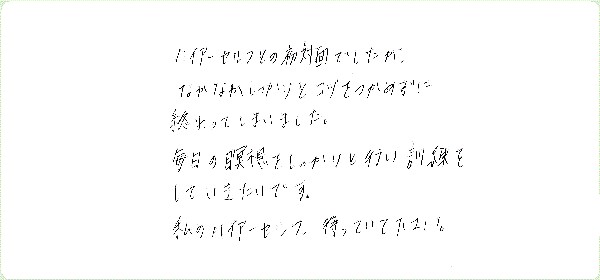 ハイアーセルフとの初対面でしたが、
なかなかしっかりとコツをつかめずに
終わってしまいました。
毎日の瞑想をしっかりと行い訓練を
していきたいです。
私のハイアーセルフ、待っていて下さい。